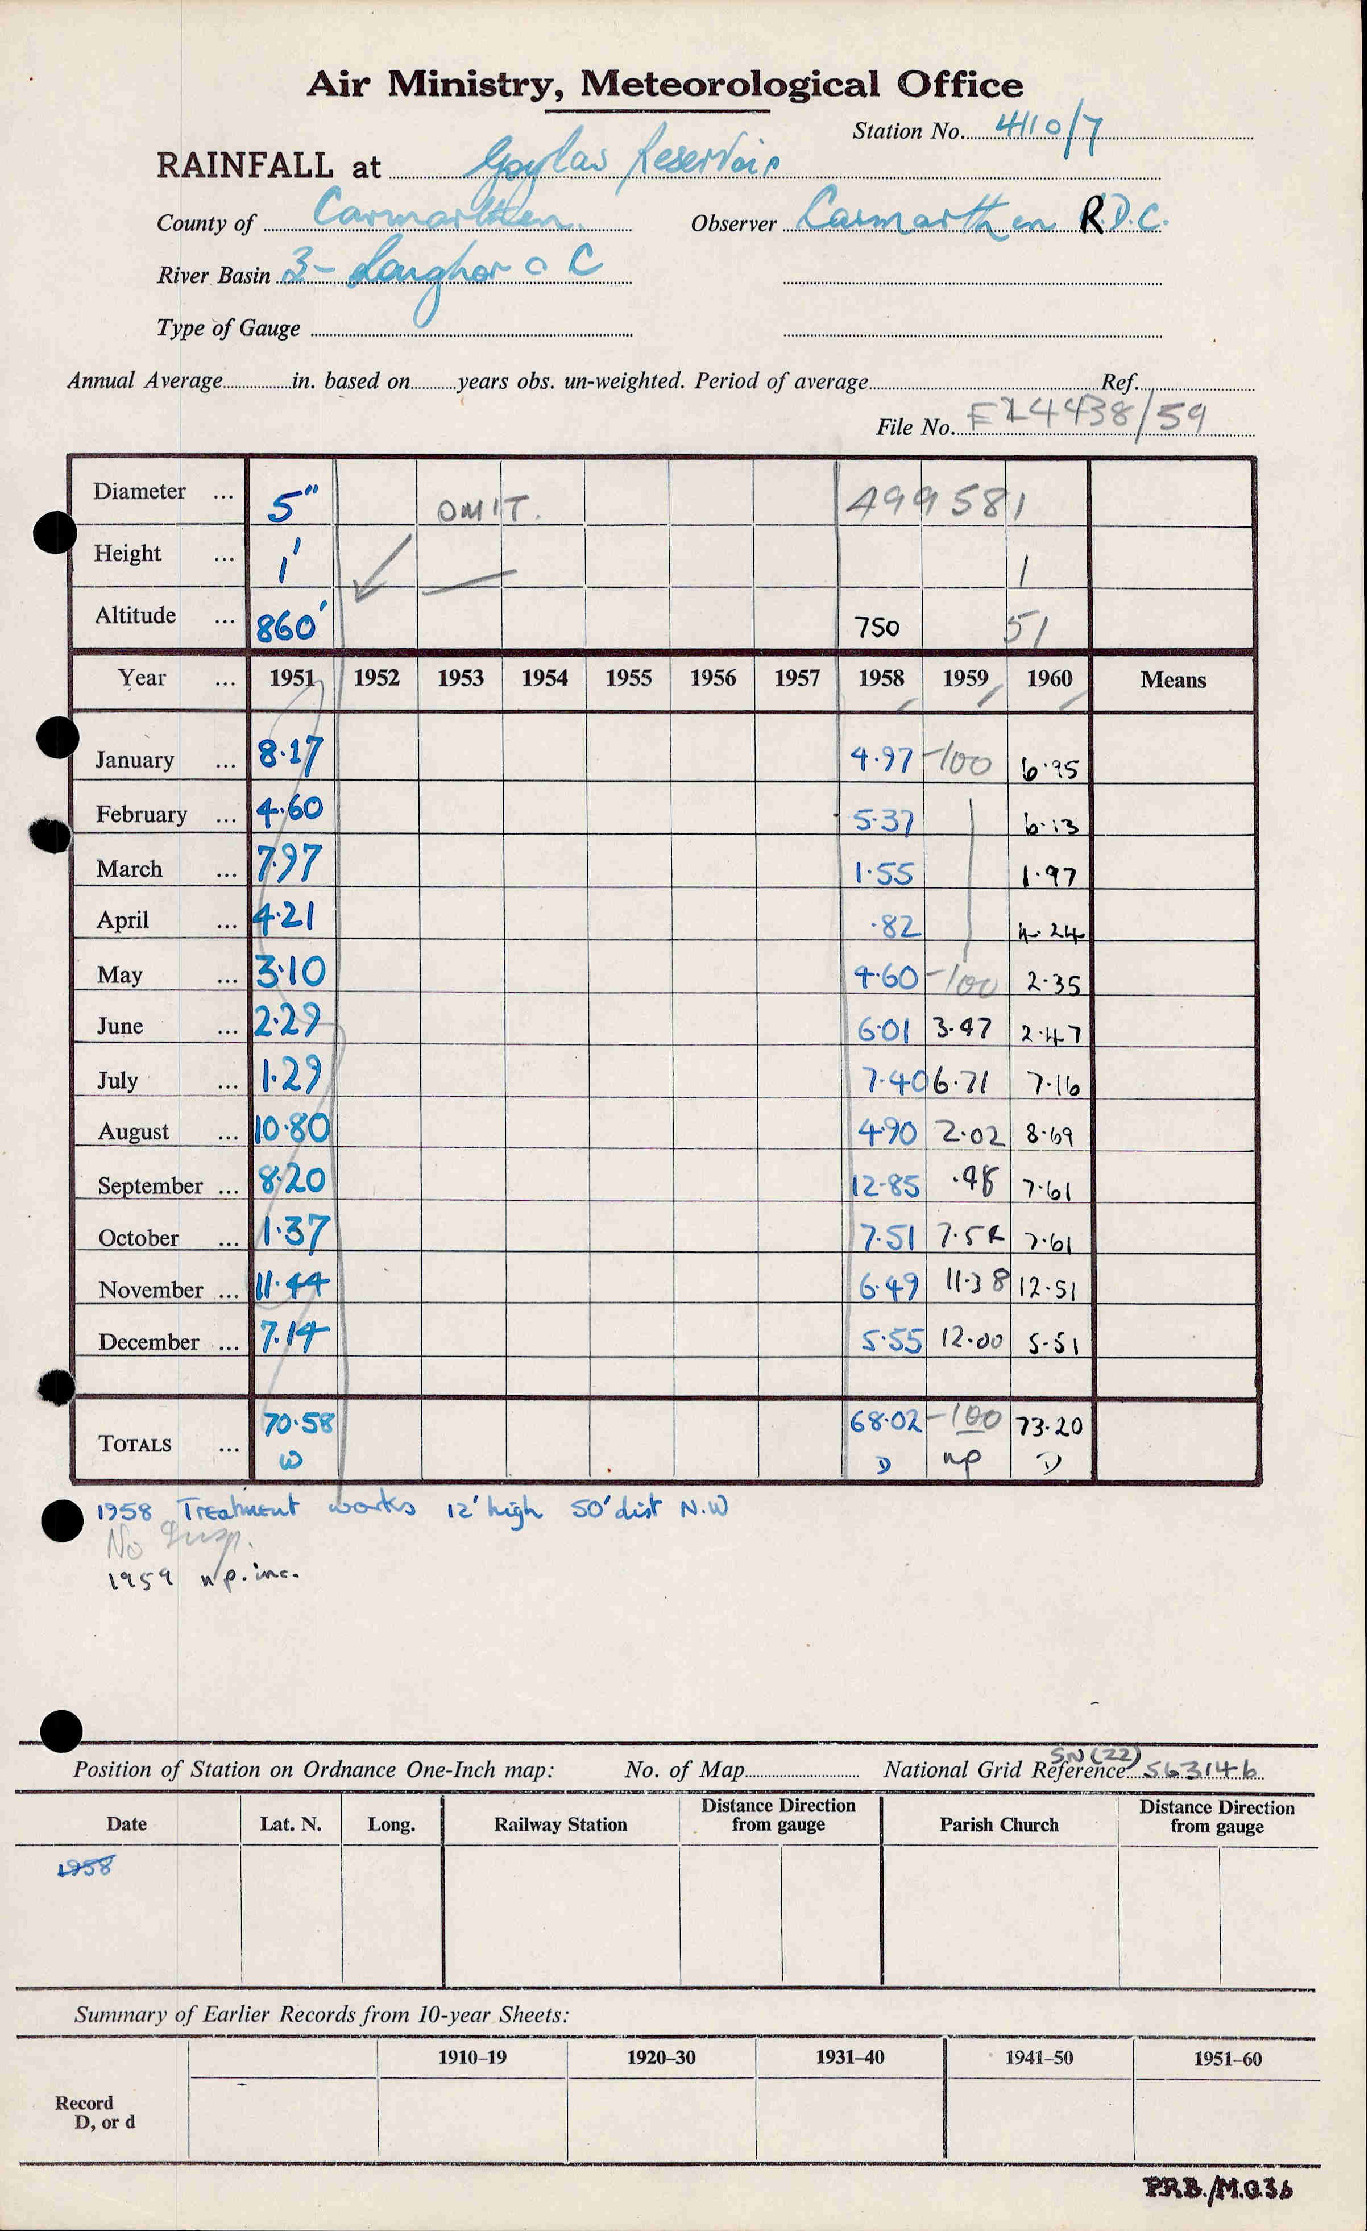 Air Ministry, Meteorological Office
Station No. 4110/7
RAINFALL at Goylas Reservoir
County of Carmarthen. Observer Carmarthen R.D.C.
River Basin 3- Loughor o C
Type of Gauge
Annual Average in. based on years obs. un-weighted. Period of average Ref.
File No. 4438/59
Diameter ... 5" OMIT. 499581
Height ... 1' 1
Altitude ... 860' 750 51
Year ... 1951 1952 1953 1954 1955 1956 1957 1958 1959 1960 Means
January ... 8.17 4.97 -100 6.95
February ... 4.60 5.37 6.13
March ... 7.97 1.55 1.97
April ... 4.21 .82 4.24
May ... 3.10 4.60 -100 2.35
June ... 2.29 6.01 3.47 2.47
July ... 1.29 7.40 6.71 7.16
August ... 10.80 4.90 2.02 8.69
September ... 8.20 12.85 .98 7.61
October ... 1.37 7.51 7.52 7.61
November ... 11.44 6.49 11.38 12.51
December ... 7.14 5.55 12.00 5.51
TOTALS ... 70.58 68.02 -100 73.20
W D np D
1958 Treatment works 12' high 50' dist N.W
No Insp.
1959 np. inc.
Position of Station on Ordnance One-Inch map: No. of Map National Grid Reference SN (22) 563146
Date Lat. N. Long. Railway Station Distance Direction from gauge Parish Church Distance Direction from gauge
1958
Summary of Earlier Records from 10-year Sheets:
1910–19 1920–30 1931–40 1941–50 1951–60
Record
D, or d
P.R.B./M.O.36